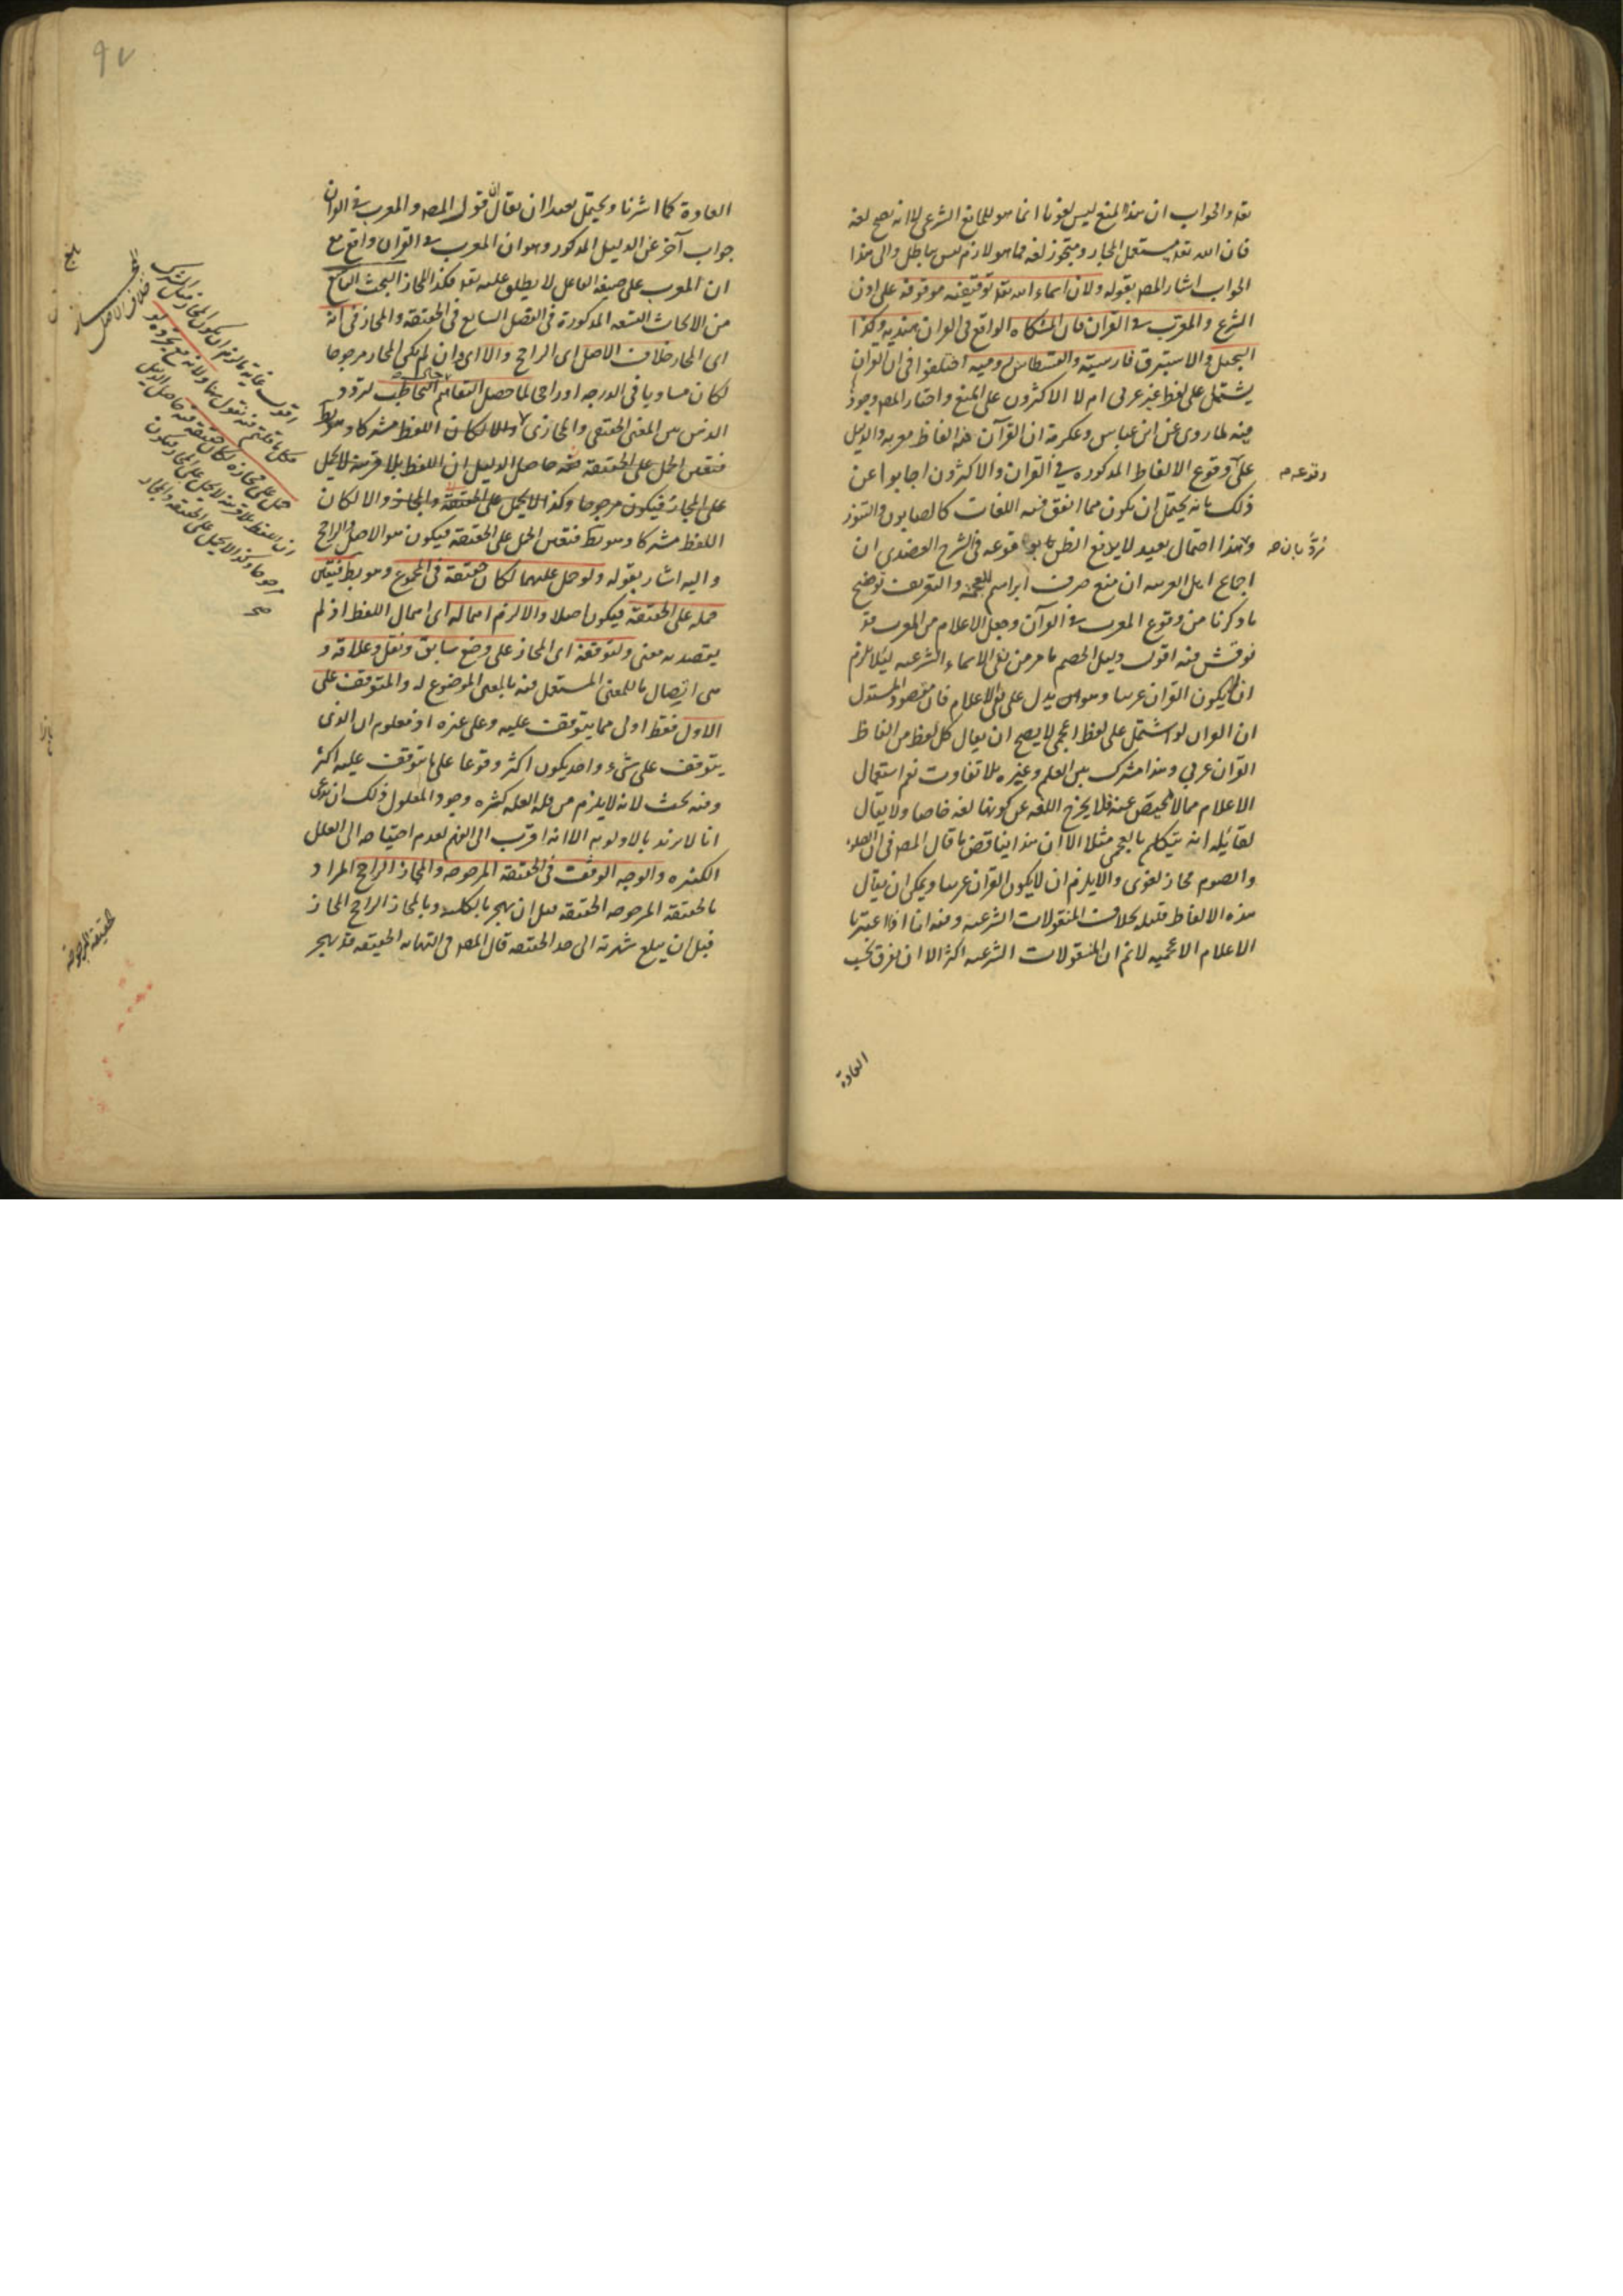 تعالى والجواب ان هذا المنع ليس لغويا انما هو للمانع الشرعي الا انه يصح لغة
فان الله تعالى مستعمل المجاز ومتجوز لغة فما هو لازم ليس بباطل والى هذا
الجواب اشار المصـ بقوله ولان اسماء الله تعـ توقيفية موقوفة على اذن
الشرع والمعرب في القرآن فان المشكاة الواقع في القران هندية وكذا
السجيل والاستبرق فارسية والقسطاس رومية اختلفوا في ان القران
يشتمل على لفظ غير عربي ام لا الاكثرون على المنع واختار المصـ وجوده
فيه لما روي عن ابن عباس وعكرمة ان القرآن هذه الفاظ معربة والدليل
على وقوع الالفاظ المذكورة في القران والاكثرون اجابوا عن
وقوعه م
ذلك بانه يحتمل ان يكون مما اتفق فيه اللغات كالصابون والتنور
وهذا احتمال بعيد لا يدفع الظن وقوعه في الشرح العضدي ان
بان
اجماع اهل العربية ان منع صرف ابراهيم للعجمة والتعريف توضيح
ما ذكرنا من وقوع المعرب في القرآن وجعل الاعلام من المعرب قد
نوقش فيه اقول دليل الخصم ما مر من نفي الاسماء الشرعية لئلا يلزم
ان لا يكون القران عربيا وهو يدل على نفي الاعلام فان مقصود المستدل
ان القران لو اشتمل على لفظ اعجمي لا يصح ان يقال كل لفظ من الفاظ
القران عربي وهذا مشترك بين العلم وغيره بلا تفاوت نعم استعمال
الاعلام مما لا محيص عنه فلا يخرج اللغة عن كونها لغة خاصا ولا يقال
لقائله انه يتكلم بالعجمي مثلا الا ان هذا يناقض ما قال المصـ في ان الصلوة
والصوم مجاز لغوي والا يلزم ان لا يكون القران عربيا ويمكن ان يقال
هذه الالفاظ قليلة بخلاف المنقولات الشرعية وفيه انا اذا اعتبرنا
الاعلام الاعجمية لانم ان المنقولات الشرعية اكثر الا ان نفرق بحسب
العادة
٩٧
العادة كما اشرنا ويحتمل بعيدا ان يقال ان قول المصـ والمعرب في القران
جواب آخر عن الدليل المذكور وهو ان المعرب في القران واقع مع
ان المعرب على صيغة الفاعل لا يطلق عليه تعـ فكذا المجاز البحث السابع
من الابحاث التسعة المذكورة في الفصل السابع في الحقيقة والمجاز في انه
اى المجاز خلاف الاصل اى الراجح والا اى وان لم يكن المجاز مرجوحا
لكان مساويا في الدرجة او راجحا لما حصل التفاهم التخاطب لتردد
الذهن بين المعنى الحقيقي والمجازي والا لكان اللفظ مشتركا وهو بط
فتعين الحمل على الحقيقة حاصل الدليل ان اللفظ بلا قرينة لا يحمل
على المجاز فيكون مرجوحا وكذا لا يحمل على الحقيقة والمجاز والا لكان
اللفظ مشتركا وهو بط فتعين الحمل على الحقيقة فيكون هو الاصل والراجح
واليه اشار بقوله ولو حمل عليهما لكان حقيقة في المجموع وهو بط فتعين
حمله على الحقيقة فيكون اصلا والا لزم اهماله اى اهمال اللفظ اذ لم
يقصد به معنى ولتوقفه اى المجاز على وضع سابق ونقل وعلاقة و
هي اتصال ما للمعنى المستعمل فيه بالمعنى الموضوع له والمتوقف على
الاول فقط اولى مما يتوقف عليه وعلى غيره اذ معلوم ان الذي
يتوقف على شيء واحد يكون اكثر وقوعا على ما يتوقف عليه اكثر
وفيه بحث لانه لا يلزم من قلة العلة كثرة وجود المعلول ذلك ان تدعى
انا لا نريد بالاولوية الا انه اقرب الى الفهم لعدم احتياجه الى العلل
الكثيرة والوجه الوقف في الحقيقة المرجوحة والمجاز الراجح المراد
بالحقيقة المرجوحة الحقيقة قبل ان يهجر بالكلية وبالمجاز الراجح المجاز
قبل ان يبلغ شهرته الى حد الحقيقة قال المصـ في النهاية الحقيقة قد يهجر
بلغ
خلاف الاصل
حمل على مجازه لكان حقيقة فيه حاصل الدليل
ان اللفظ بلا قرينة لا يحمل على المجاز فيكون
مرجوحا وكذا لا يحمل على الحقيقة والمجاز
صح
الحقيقة المرجوحة